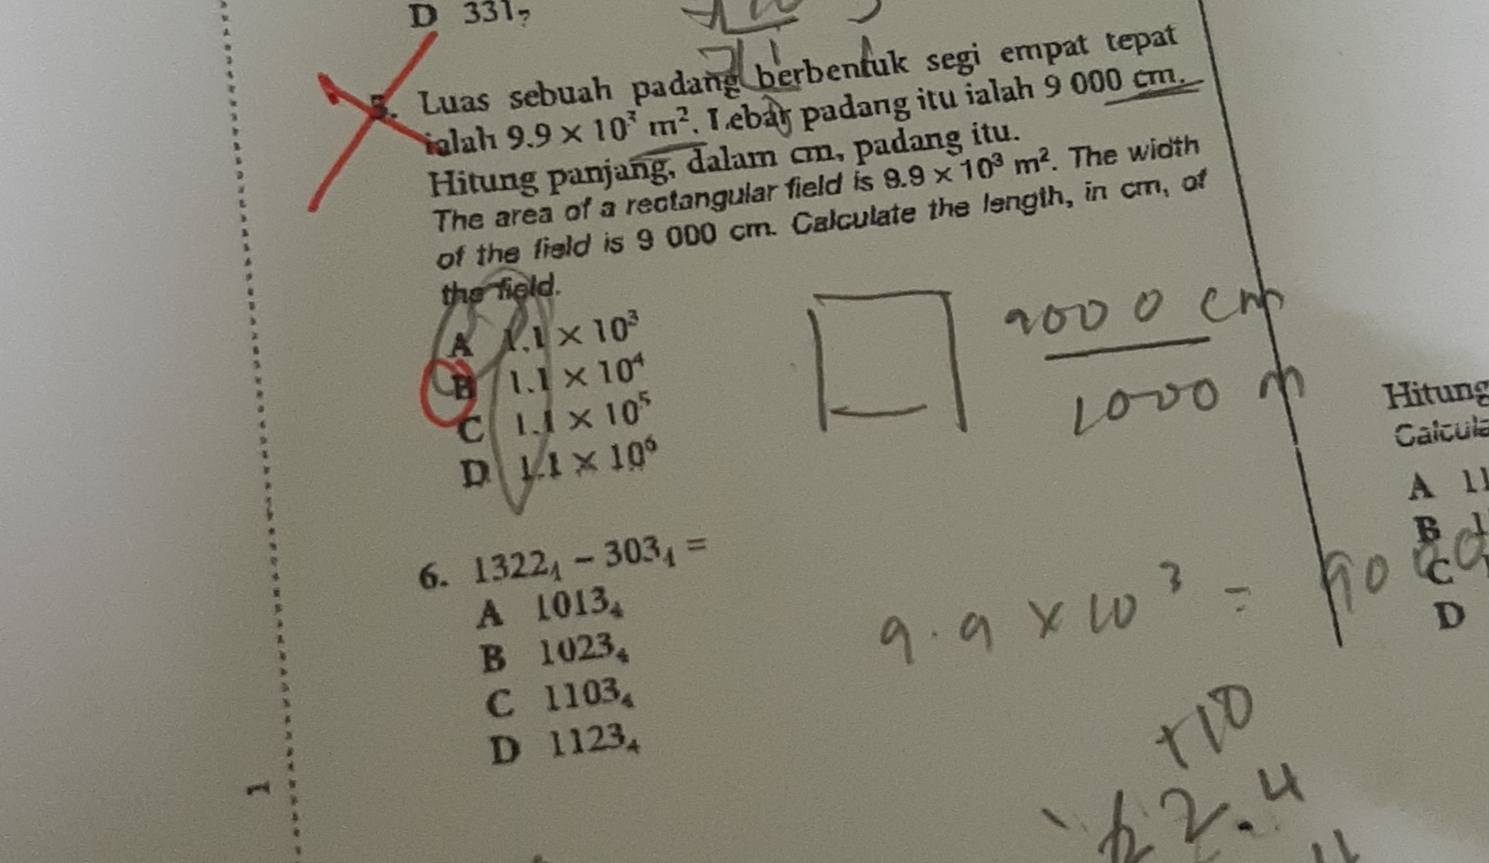 D 331₇
5. Luas sebuah padang berbentuk segi empat tepat
ialah 9.9 × 10³ m². Lebar padang itu ialah 9 000 cm.
Hitung panjang, dalam cm, padang itu.
The area of a rectangular field is 9.9 × 10³ m². The width
of the field is 9 000 cm. Calculate the length, in cm, of
the field.
A 1.1 × 10³
B 1.1 × 10⁴
C 1.1 × 10⁵
D 1.1 × 10⁶
9000 cm
1000 m
6. 1322₄ − 303₄ =
A 1013₄
B 1023₄
C 1103₄
D 1123₄
9.9 × 10³ =
+10
2.4
Hitung
A 11
B 1
C
D
1